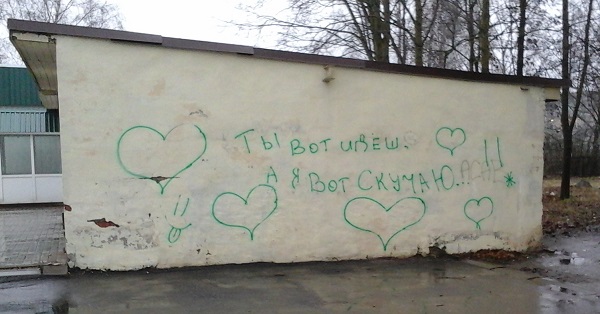 Ты вот идеш.
А я вот скучаю...!!